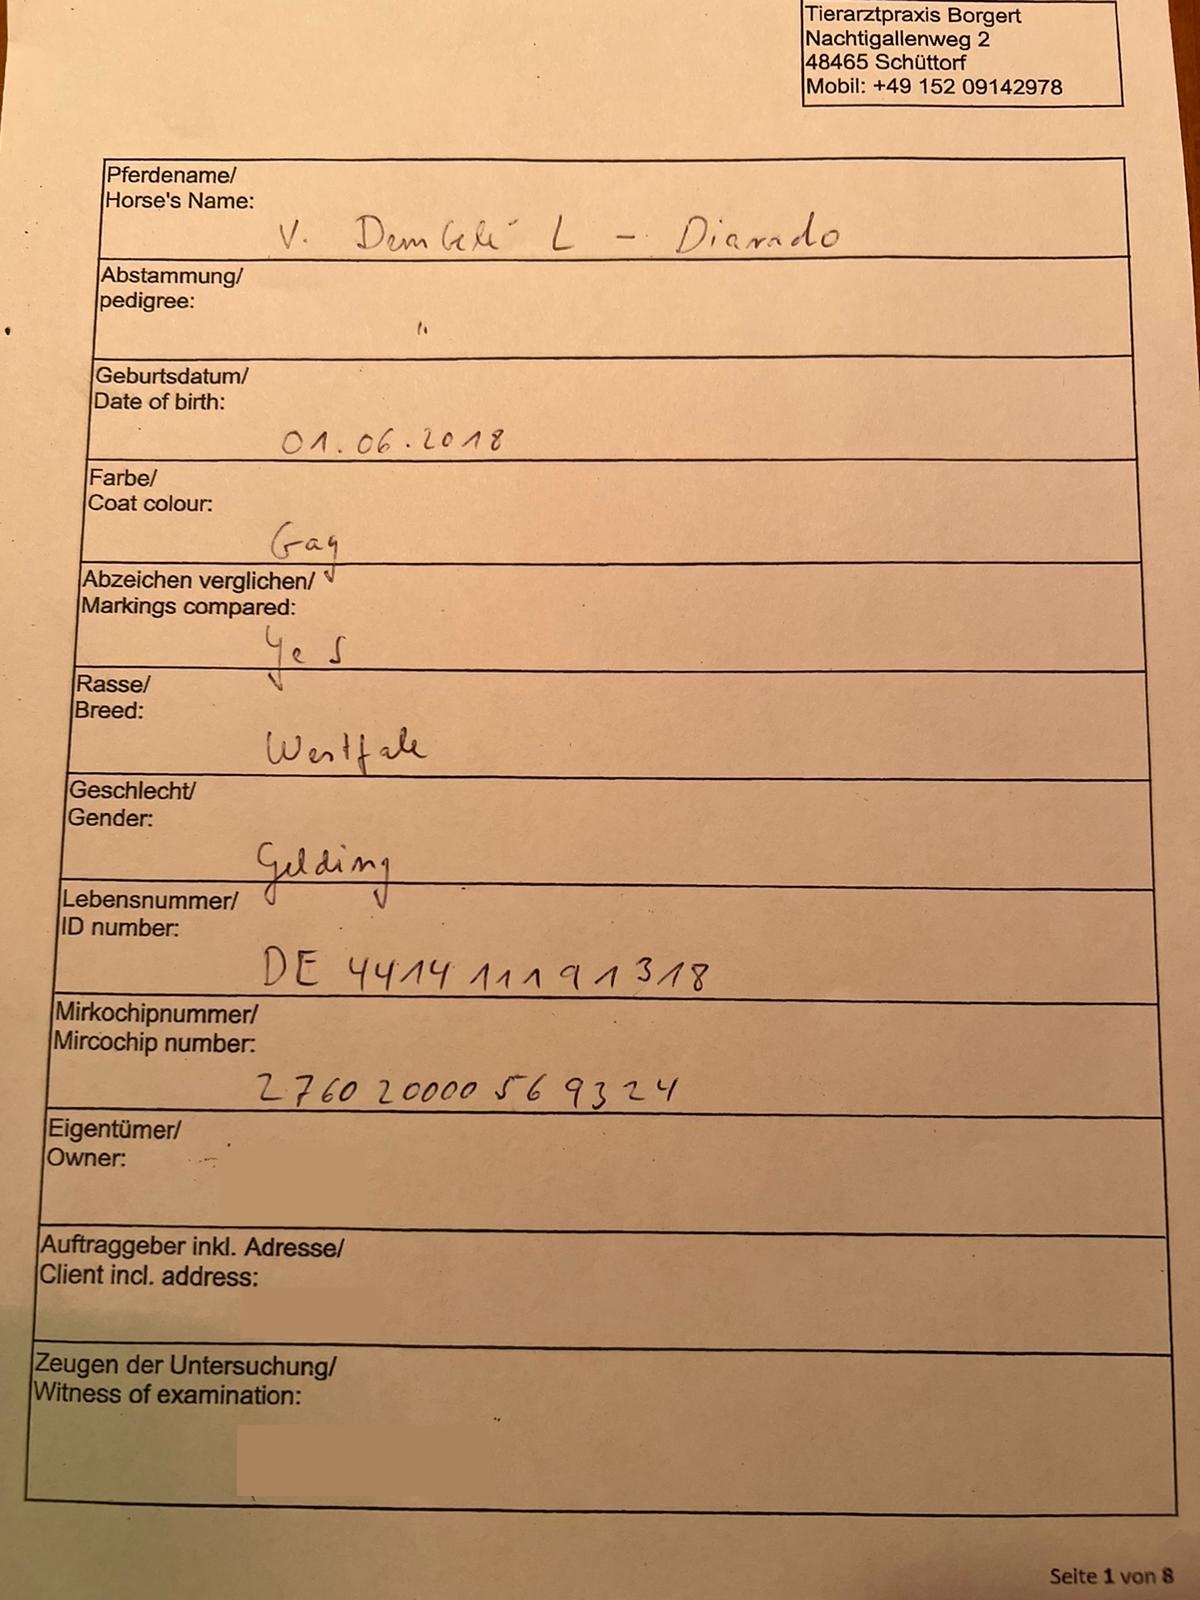 Tierarztpraxis Borgert
Nachtigallenweg 2
48465 Schüttorf
Mobil: +49 152 09142978
Pferdename/
Horse's Name:
V. Dembelé L - Diarado
Abstammung/
pedigree:
"
Geburtsdatum/
Date of birth:
01.06.2018
Farbe/
Coat colour:
Abzeichen verglichen/
Markings compared:
Yes
Rasse/
Breed:
Westfale
Geschlecht/
Gender:
Gelding
Lebensnummer/
ID number:
DE 4414 111 91318
Mirkochipnummer/
Mircochip number:
276020000569324
Eigentümer/
Owner:
Auftraggeber inkl. Adresse/
Client incl. address:
Zeugen der Untersuchung/
Witness of examination:
Seite 1 von 8